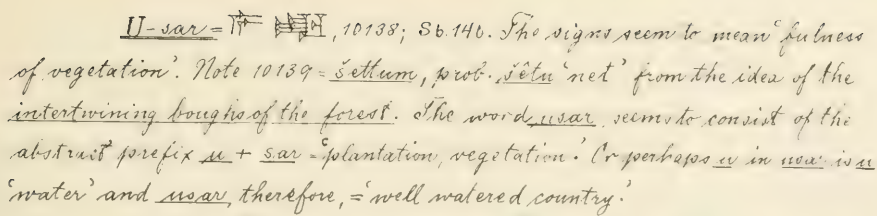 U-sar = 𒇻 𒊬, 10138; Sb. 146. The signs seem to mean 'fulness
of vegetation'. Note 10139 = šettum, prob. šêtu 'net' from the idea of the
intertwining boughs of the forest. The word usar seems to consist of the
abstract prefix u + sar = 'plantation, vegetation.' Or perhaps u in usar is u
'water' and usar, therefore, = 'well watered country.'